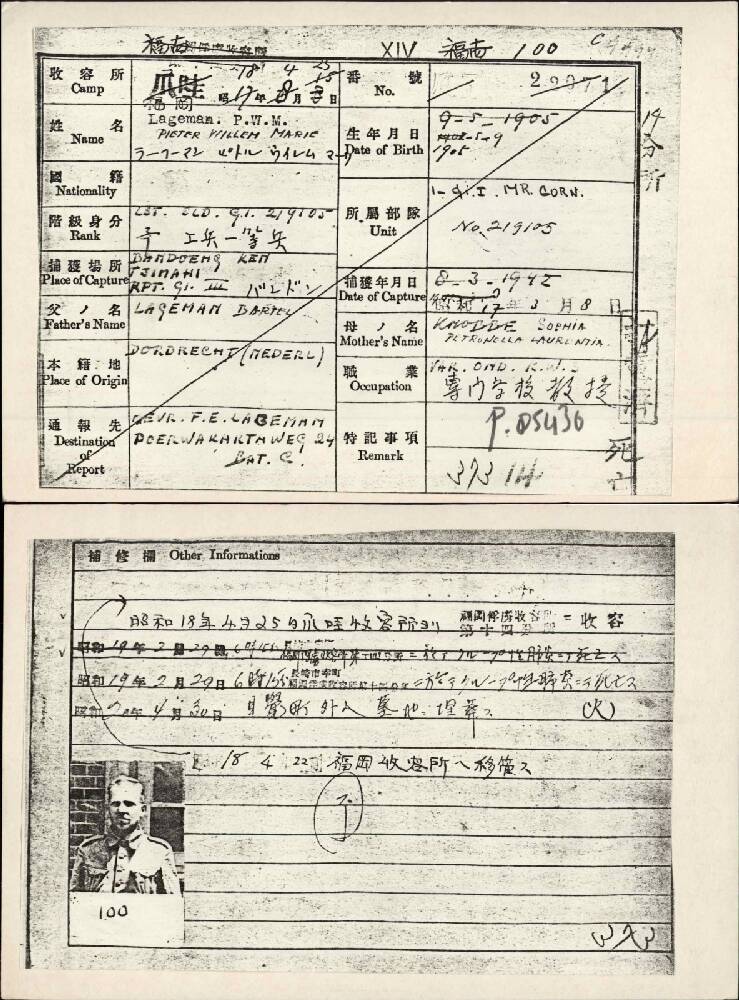 福岡俘虜収容所 XIV 福岡 100
収容所 Camp 爪哇 福岡 18 4 25 昭17年8月15日
番號 No. 29971
姓名 Name Lageman. P.W.M.
PIETER WILLEM MARIE
ラーフーマン ピートル ウイレム マリ
生年月日 Date of Birth 9-5-1905
1905-5-9
1905
14分所
國籍 Nationality
階級身分 Rank LST. SLD. G.I. 219105
工兵一等兵
所属部隊 Unit 1-G.I. MR. CORN.
No. 219105
捕獲場所 Place of Capture BANDOENG KEN
TJIMAHI
RPT. GI. III バンドン
捕獲年月日 Date of Capture 8-3-1942
昭和17年3月8日
父ノ名 Father's Name LAGEMAN BARTEL
母ノ名 Mother's Name KNOBBE SOPHIA
PETRONELLA LAURENTIA.
本籍地 Place of Origin DORDRECHT (NEDERL)
職業 Occupation
専門学校教授
通報先 Destination of Report MEVR. F.E. LAGEMAN
POERWAKARTAWEG 24
BAT. C.
特記事項 Remark P.05436
373
死亡
補修欄 Other Informations
昭和18年4月25日爪哇収容所ヨリ福岡俘虜収容所第十四分所ニ収容
昭和19年2月29日6時15分 第十四分所ニ於テクループ性肺炎ニテ死亡ス
昭和19年2月29日6時15分長崎市幸町福岡俘虜収容所第十四分所ニ於テクループ性肺炎ニテ死亡ス
昭和20年4月30日 外人墓地ニ埋葬ス (火)
18 4 22 福岡収容所ヘ移管ス
100
373